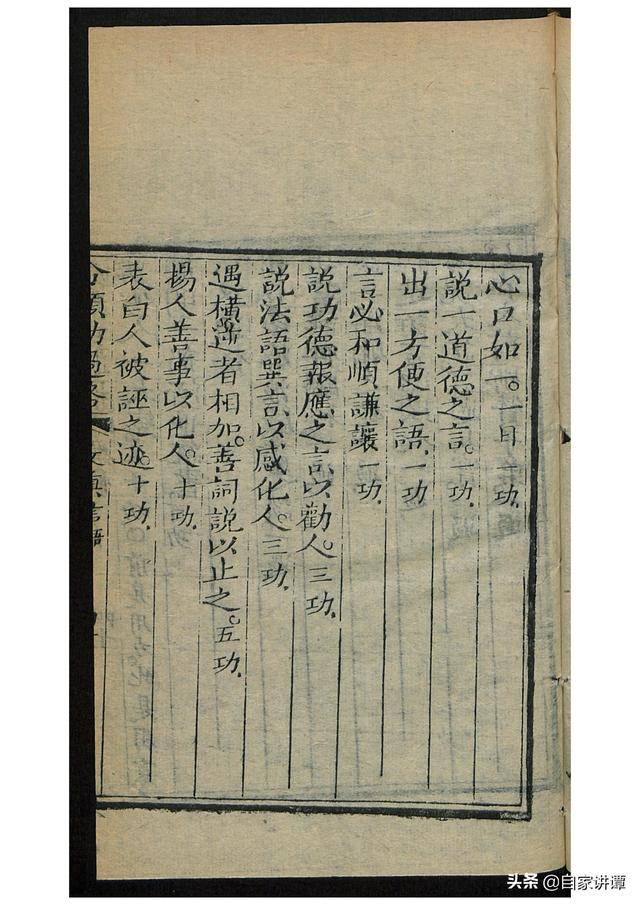 心口如一。一日一功.
說一道德之言。一功.
出一方便之語.一功
言必和順謙讓一功.
說功德報應之言以勸人。三功.
說法語巽言以感化人。三功.
遇橫逆者相加。善詞說以止之。五功.
揚人善事以化人。十功.
表白人被誣之迹。十功.
分類功過格
头条 @自家讲谭